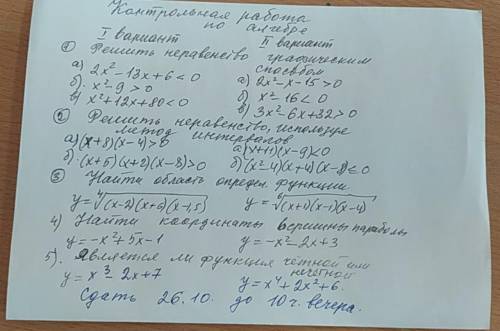 Контрольная работа
по алгебре
I вариант II вариант
1 Решить неравенство графическим
способом
а) 2x² - 13x + 6 < 0 а) 2x² - x - 15 > 0
б) x² - 9 > 0 б) x² - 16 < 0
в) x² + 12x + 80 < 0 в) 3x² - 6x + 32 > 0
2 Решить неравенство, используя
метод интервалов
а) (x+8)(x-4) > 0 а) (x+11)(x-9) < 0
б) (x+5)(x+2)(x-8) > 0 б) (x²-4)(x+4)(x-8) ≤ 0
3 Найти область определ. функции
y = ⁴√(x-2)(x+2)(x-1,5) y = ⁶√(x+1)(x-1)(x-4)
4) Найти координаты вершины параболы
y = -x² + 5x - 1 y = -x² - 2x + 3
5). Является ли функция чётной или
нечётной
y = x³ - 2x + 7 y = x⁴ + 2x² + 6.
Сдать 26.10. до 10 ч. вечера.